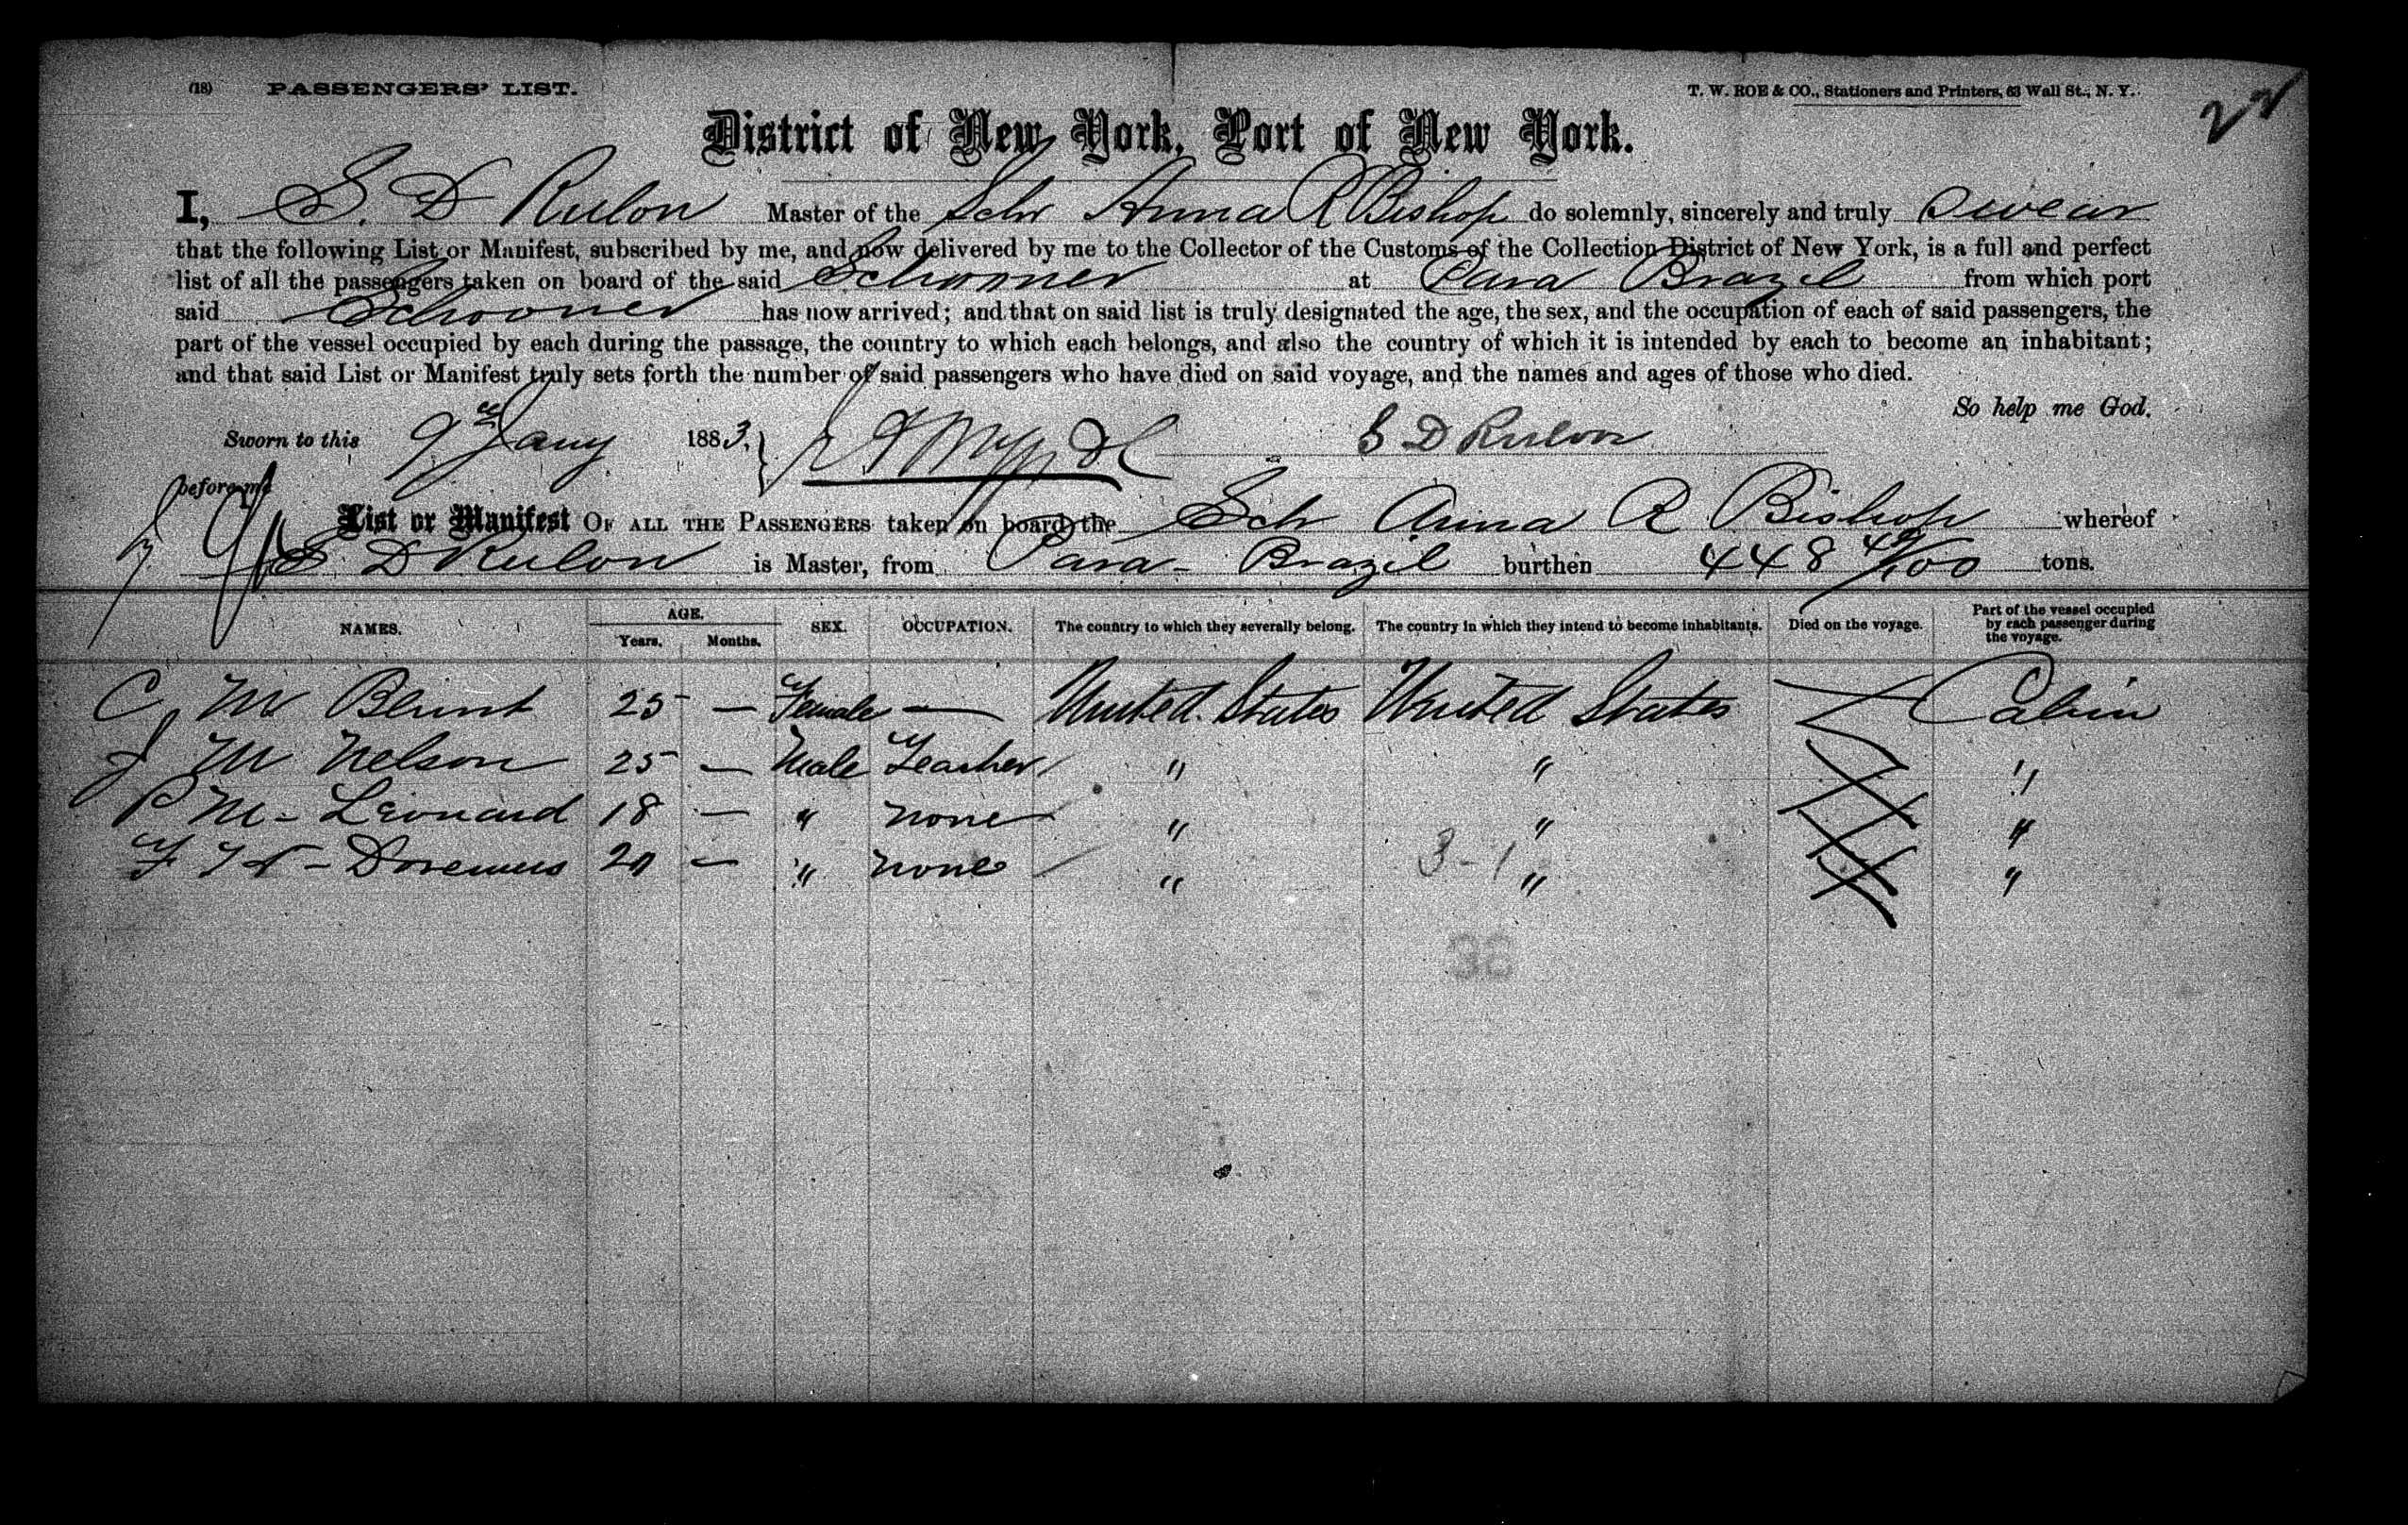 (18) PASSENGERS' LIST. T. W. ROE & CO., Stationers and Printers, 63 Wall St., N. Y.
22
District of New York, Port of New York.
I, S. D Rulon Master of the Schr Anna R Bishop do solemnly, sincerely and truly swear
that the following List or Manifest, subscribed by me, and now delivered by me to the Collector of the Customs of the Collection District of New York, is a full and perfect
list of all the passengers taken on board of the said Schooner at Para Brazil from which port
said Schooner has now arrived; and that on said list is truly designated the age, the sex, and the occupation of each of said passengers, the
part of the vessel occupied by each during the passage, the country to which each belongs, and also the country of which it is intended by each to become an inhabitant;
and that said List or Manifest truly sets forth the number of said passengers who have died on said voyage, and the names and ages of those who died.
So help me God.
Sworn to this 9th Jany 1883. S D Rulon
before me
List or Manifest OF ALL THE PASSENGERS taken on board the Sch Anna R Bishop whereof
S D Rulon is Master, from Para - Brazil burthen 448 49/100 tons.
NAMES. AGE. Years. Months. SEX. OCCUPATION. The country to which they severally belong. The country in which they intend to become inhabitants. Died on the voyage. Part of the vessel occupied by each passenger during the voyage.
C M Blunt 25 — Female — United States United States Cabin
J M Nelson 25 — Male Teacher " " "
P M - Leonard 18 — " none " " "
F - Doremus 20 — " none " " "
3-1
36